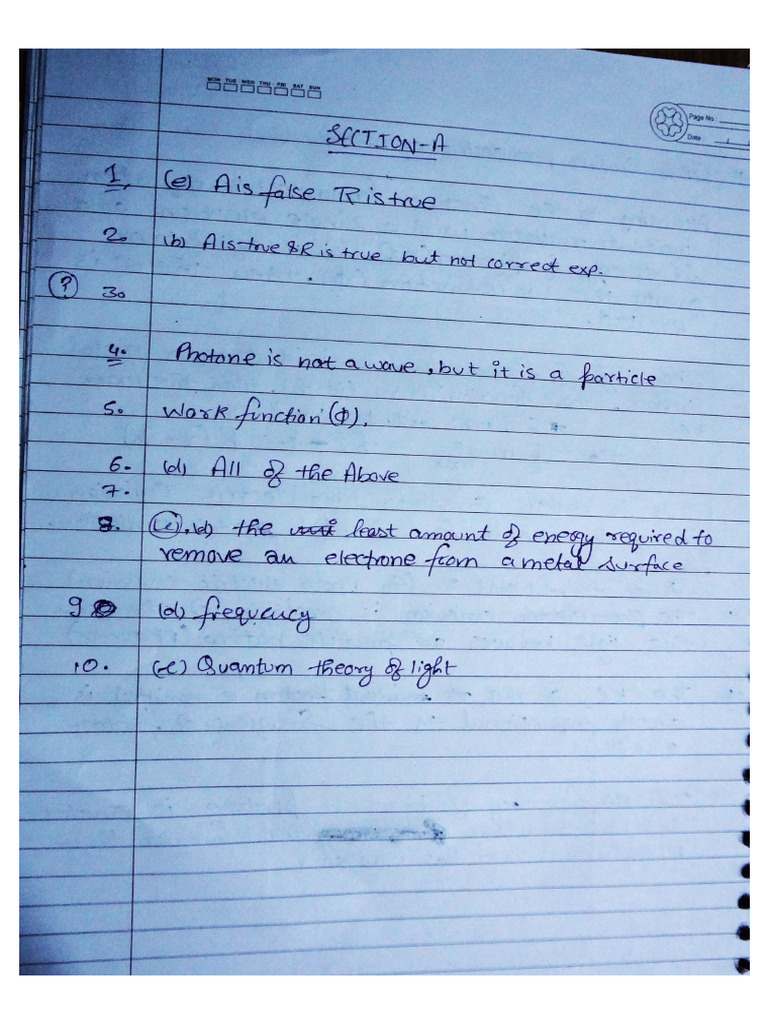 MON TUE WED THU FRI SAT SUN
Page No :
Date :
SECTION-A
1. (e) A is false R is true
2. (b) A is true & R is true but not correct exp.
? 3.
4. Photone is not a wave, but it is a particle
5. Work function (Φ).
6. (d) All of the Above
7.
8. (d) the least amount of energy required to
remove an electrone from a metal surface
9 (d) frequency
10. (c) Quantum theory of light